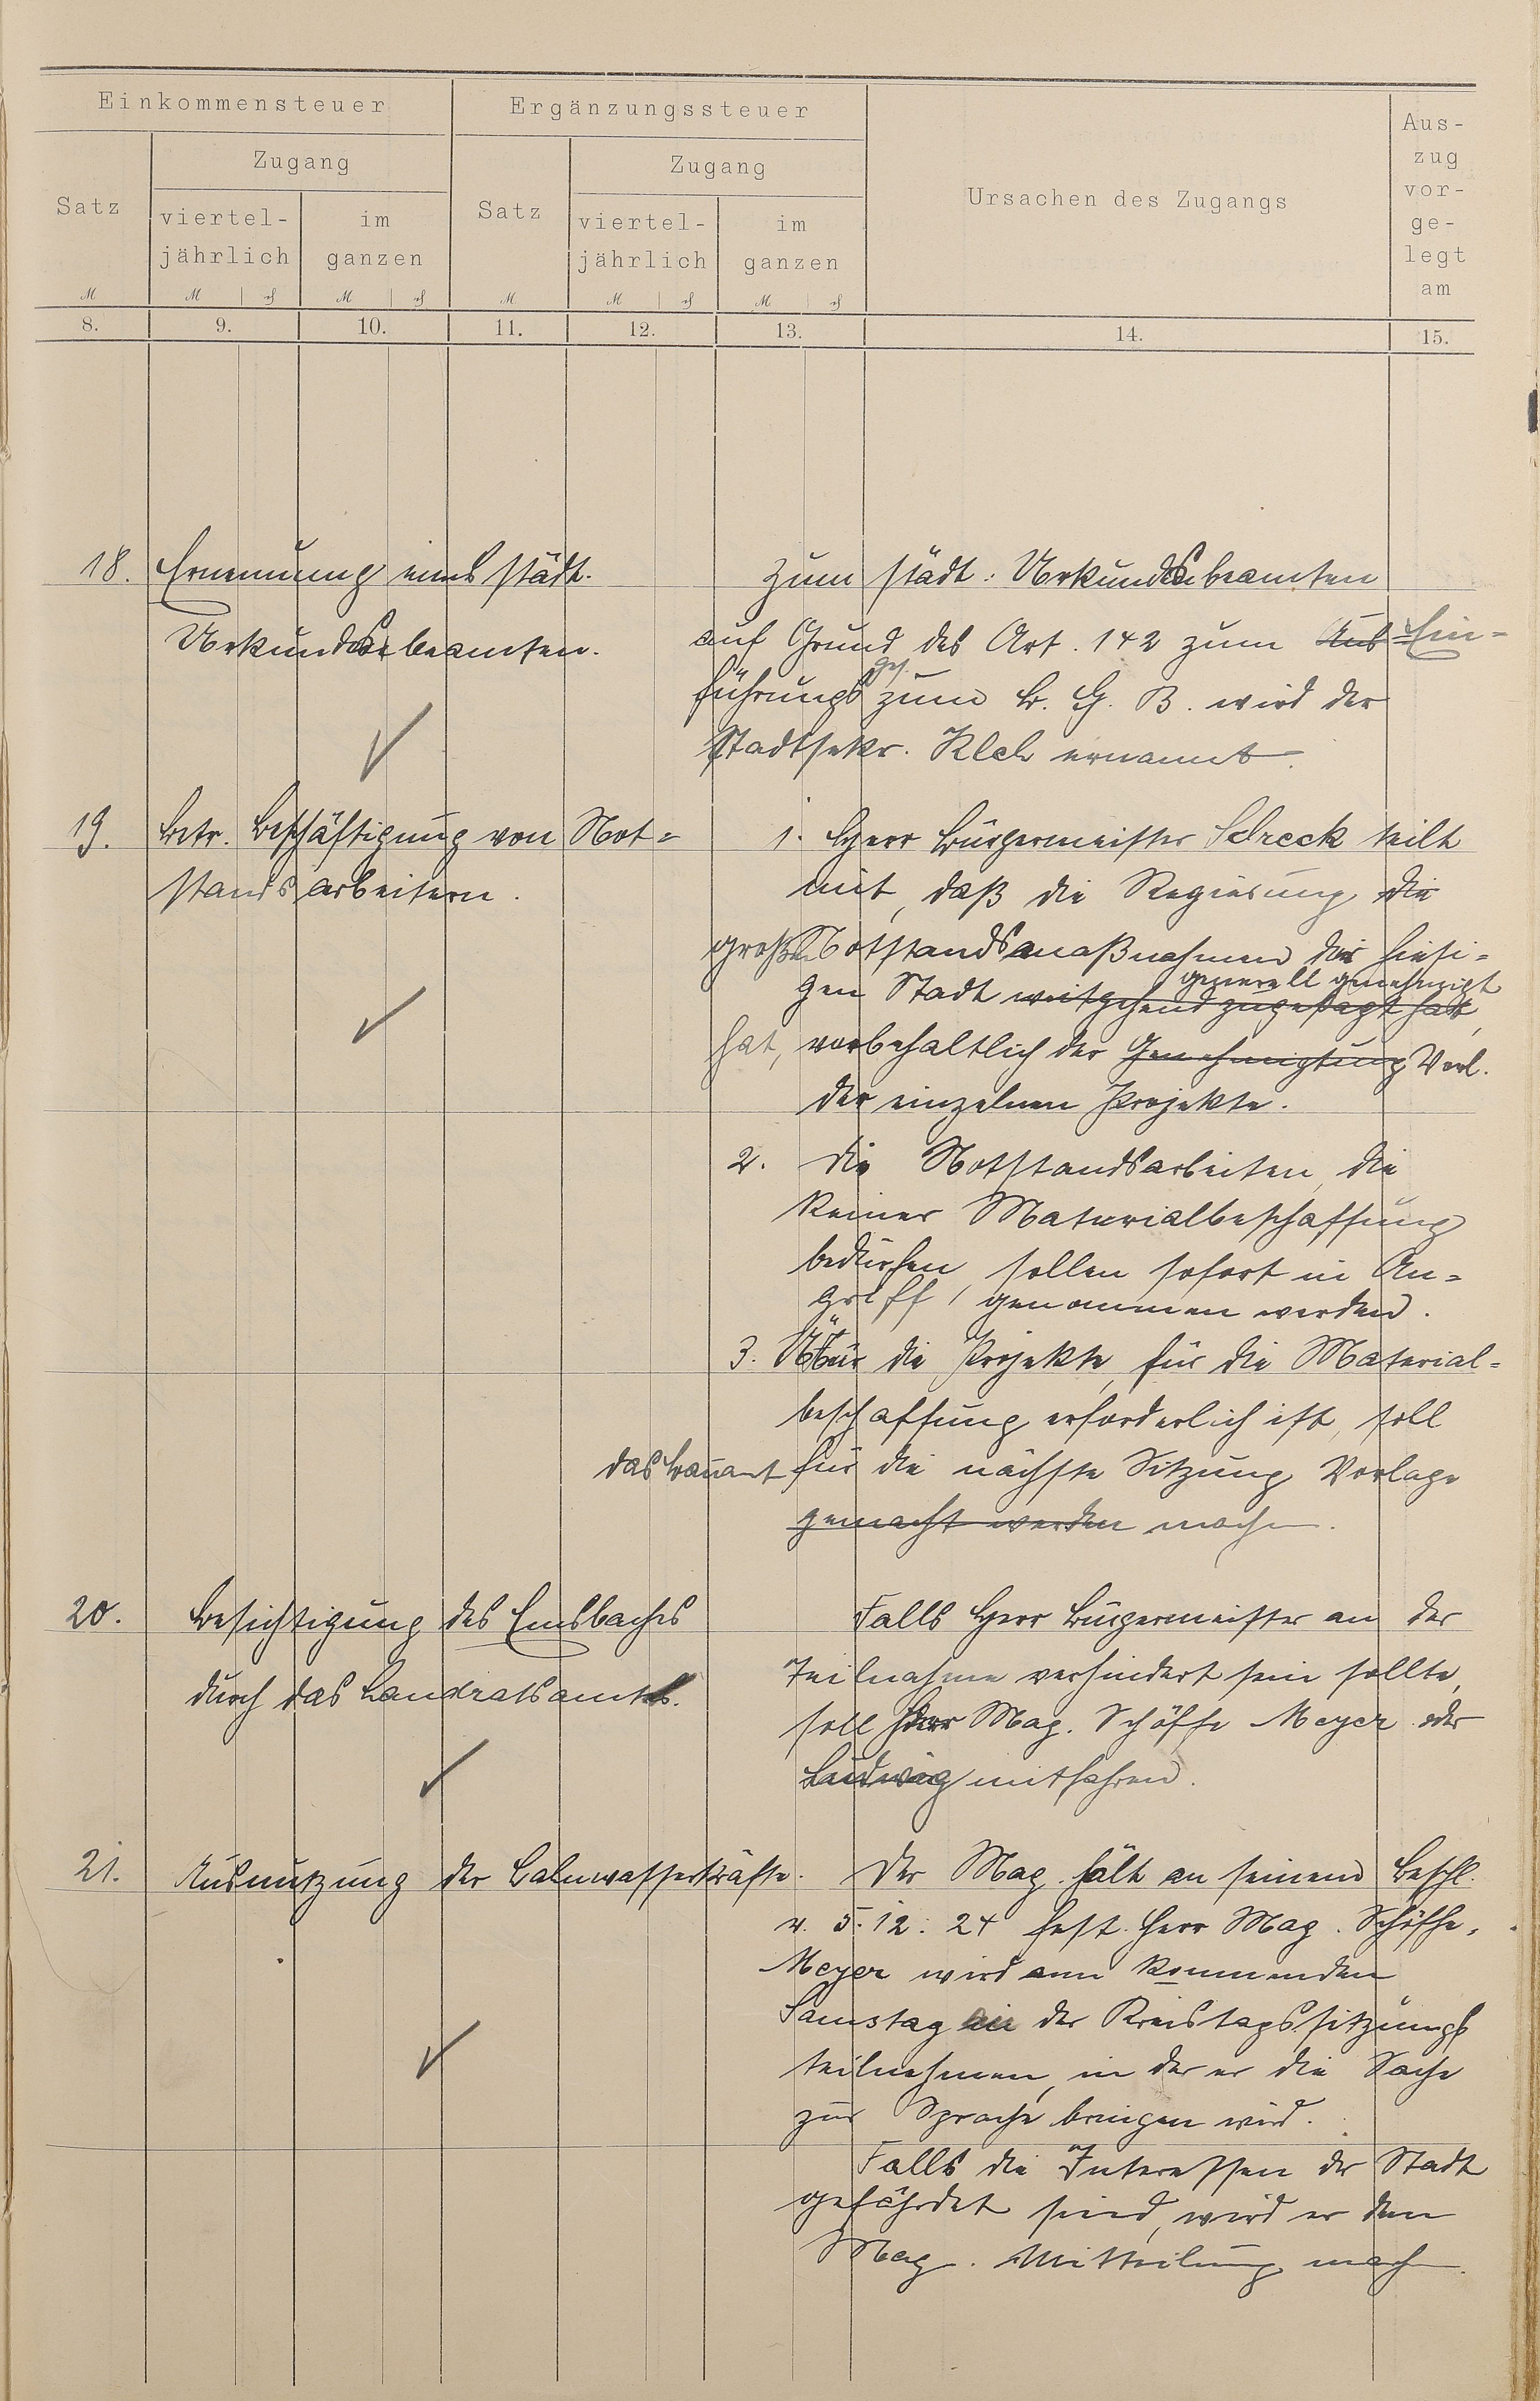 Einkommensteuer
Ergänzungssteuer
Ursachen des Zugangs
Aus-
zug
vor-
ge-
legt
am
Satz
Zugang
Satz
Zugang
viertel-
jährlich
im
ganzen
viertel-
jährlich
im
ganzen
M M M M M M
8. 9. 10. 11. 12. 13. 14. 15.
18. Ernennung eines städt.
Urkundsbeamten.
Zum städt. Urkundsbeamten
auf Grund des Art. 142 zum Aus Ein-
führungs ges. zum B. G. B. wird der
Stadtsekr. ernannt.
19. Betr. Beschäftigung von Not-
standsarbeitern.
1. Herr Bürgermeister Schreck teilt
mit, daß die Regierung die
großen Notstandsmaßnahmen der hiesi-
generell genehmigt
gen Stadt weitgehend zugesagt hat,
hat, vorbehaltlich der Genehmigung Vorl.
der einzelnen Projekte.
2. Die Notstandsarbeiten, die
keiner Materialbeschaffung
bedürfen, sollen sofort in An-
griff genommen werden.
3. Für die Projekte, für die Material-
beschaffung erforderlich ist, soll
das Bauamt für die nächste Sitzung Vorlage
gemacht werden machen.
20. Besichtigung des Emsbaches
durch das Landratsamt.
Falls Herr Bürgermeister an der
Teilnahme verhindert sein sollte,
soll Herr Mag. Schöffe Meyer oder
Ludwig mitfahren.
21. Ausnutzung der Lahnwasserkräfte.
Der Mag. hält an seinem Beschl.
v. 5. 12. 24 fest. Herr Mag. Schöffe
Meyer wird am kommenden
Samstag an der Kreistagssitzung
teilnehmen, in der er die Sache
zur Sprache bringen wird.
Falls die Interessen der Stadt
gefährdet sind, wird er dem
Mag. Mitteilung machen.